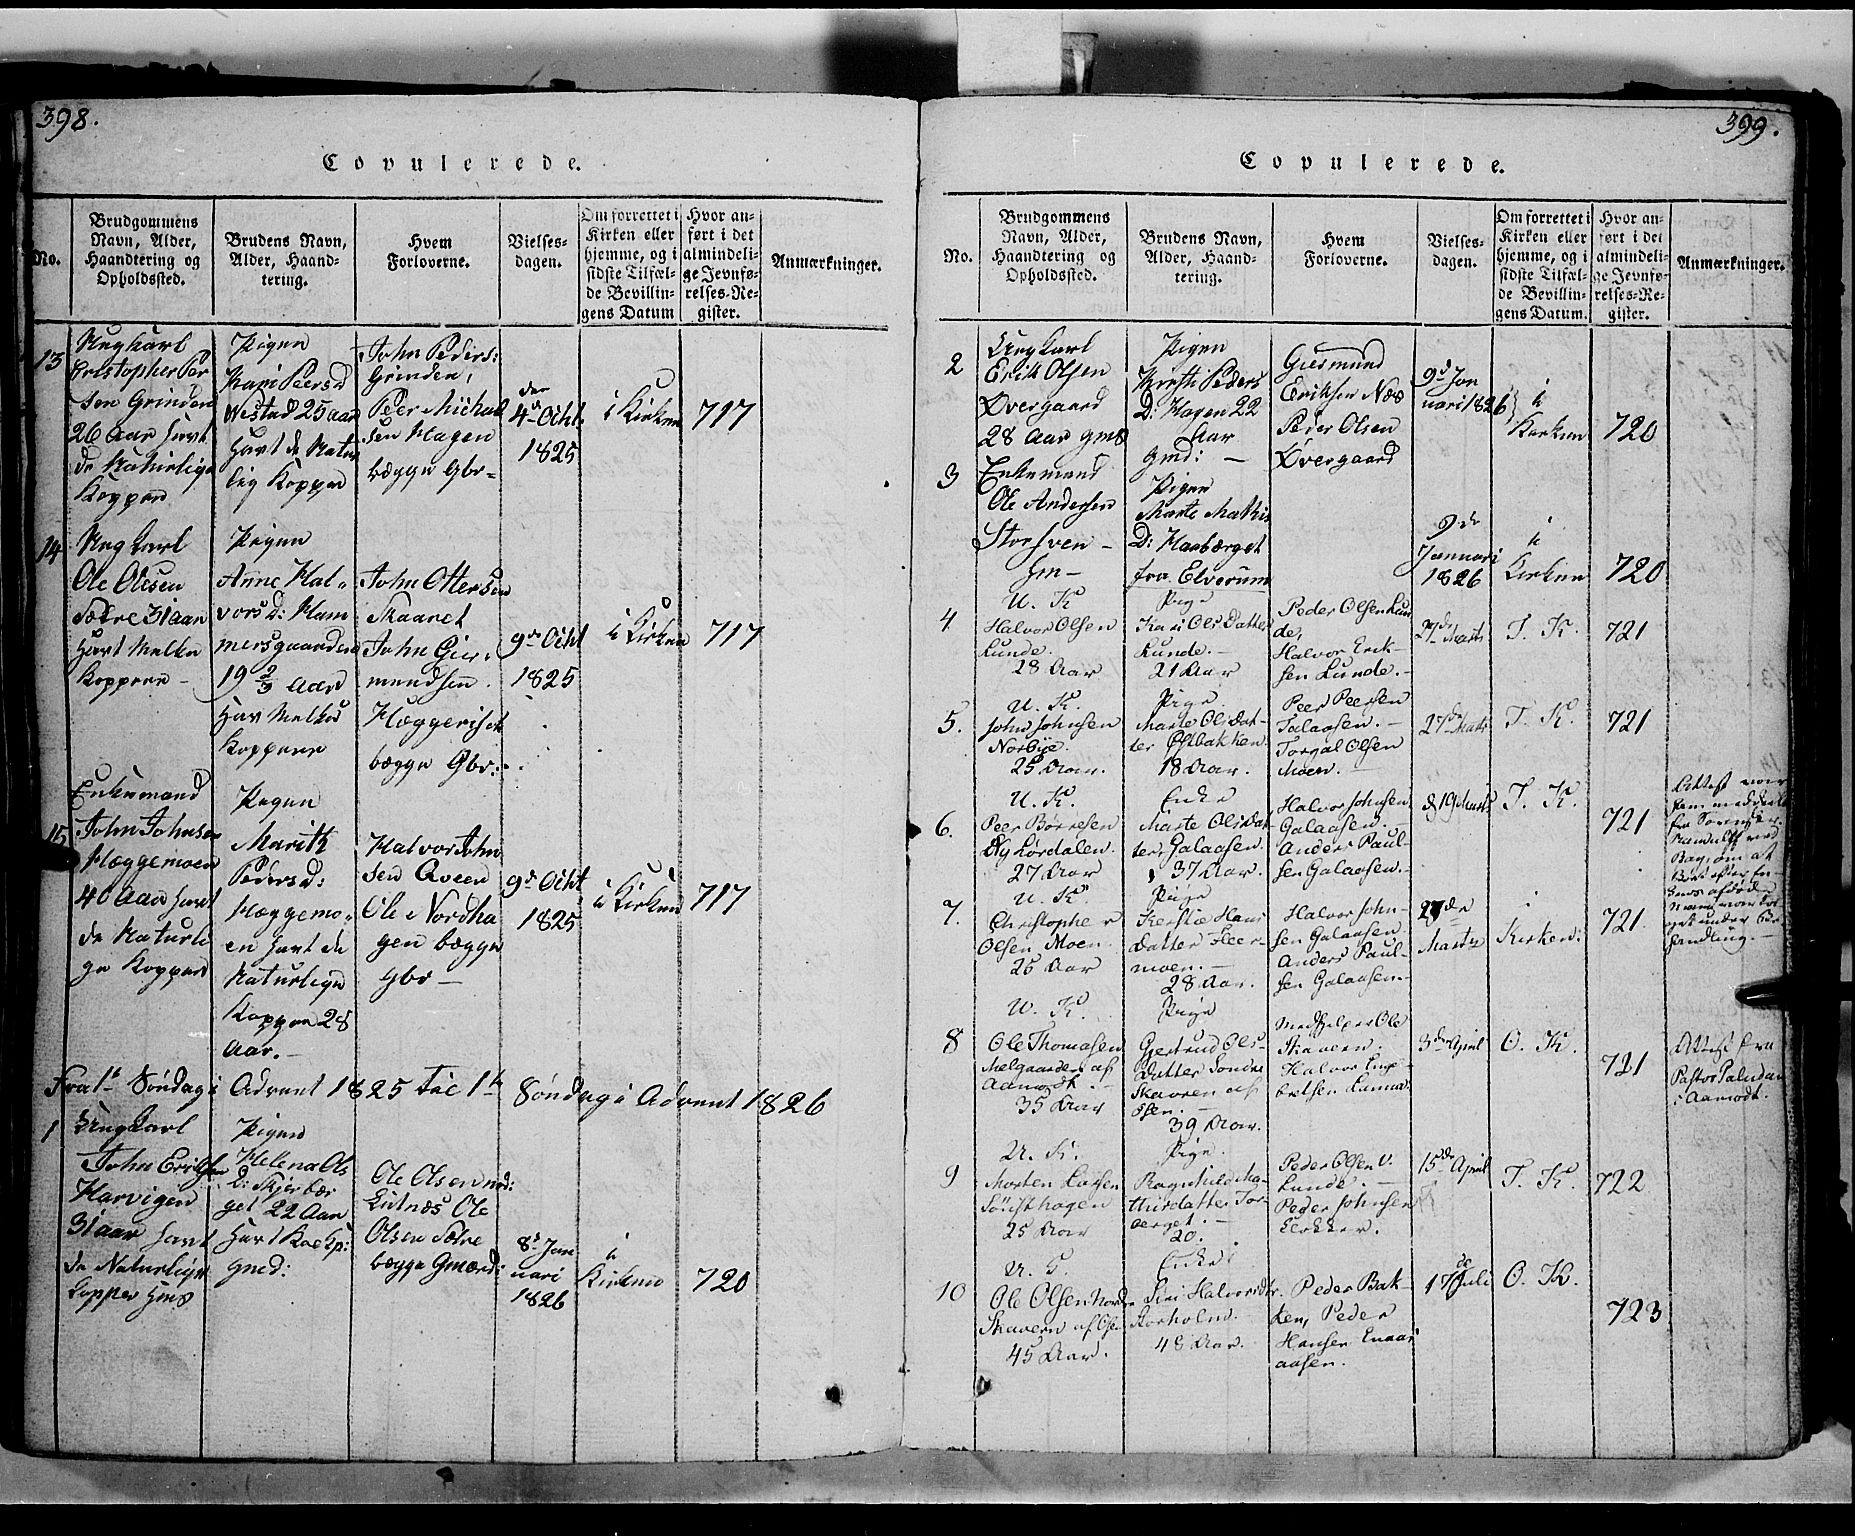 398.
Copulerede.
No.
Brudgommens
Navn, Alder,
Haandtering og
Opholdssted.
Brudens Navn,
Alder, Haand-
tering.
Hvem
Forloverne.
Vielses-
dagen.
Om forrettet i
Kirken eller
hjemme, og i
sidste Tilfæl-
de Bevillin-
gens Datum
Hvor an-
ført i det
almindeli-
ge Jevnfø-
relses-Re-
gister.
Anmærkninger.
13
Ungkarl
Cristopher Per
sen Grinden
26 Aar havt
de Naturlige
Kopper
Pigen
Kari Peersd
Nestad 25 aar
havt de Natur
lig Kopper
John Peders:
Grinden,
Peer Michael
sen Hagen
begge Gbr-
den
4de Octt.
1825
i Kirken
717
14
Ungkarl
Ole Olesen
Sætre 31 aar
havt
Koppere -
Pigen
Anne Hal-
vorsd: Ham
mersgaarden
19 2/3 Aar
har
Koppere
John Ottersen
Skaaret
John Gier-
mundsen
Heggeriset
begge Gbr:
9de Octt
1825
i Kirken
717
15
Enkemand
John Johnsen
Heggemoen
40 Aar havt
de Naturli
ge Kopper
Pigen
Marith
Pedersd:
Heggemo-
en havt de
Naturlige
Kopper 28
Aar. -
Halvor John
sen Qveen
Ole Nordha
gen begge
Gbr -
9de Octt
1825
i Kirken
717
Fra 1te Søndag i Advent 1825 til 1te Søndag i Advent 1826
1
Ungkarl
John Erichsen
Harvigen
31 aar havt
de Naturlige
Kopper
Pigen
Helena Ols
D: Skierbær
get 22 Aar
havt Koekp:
gmd:
Ole Olsen
Lutnæs Ole
Olsen Sætre
begge Gmænd:
8de Jan
uari
1826
i
Kirken
720
399.
Copulerede.
No.
Brudgommens
Navn, Alder,
Haandtering og
Opholdssted.
Brudens Navn,
Alder, Haand-
tering.
Hvem
Forloverne.
Vielses-
dagen.
Om forrettet i
Kirken eller
hjemme, og i
sidste Tilfæl-
de Bevillin-
gens Datum.
Hvor an-
ført i det
almindeli-
ge Jevnfø-
relses-Re-
gister.
Anmærkninger.
2
Ungkarl
Erik Olsen
Øvergaard
28 Aar gmd
Pigen
Kirsti Peders
D: Hagen 22
Aar
gmd: -
Giermund
Eriksen Næs
Peder Olsen
Øvergaard
9de Jan
uari 1826
i
Kirken
720
3
Enkemand
Ole Andersen
Storsveen -
Pigen
Marte Mathis
D: Haaberget
fra Elverum
9de
Januari
1826
i
Kirken
720
4
U. K
Halvor Olsen
Lunde.
28 Aar
Pige
Kari Ols Datter
Lunde. -
21 Aar
Peder Olsen Lun
de,
Halvor Erik-
sen Lunde. -
27de Marts
T. K.
721
5.
U. K.
John Johnsen
Norbye.
25 Aar.
Pige
Marte Ols Dat-
ter Østbakken.
18 Aar.
Peer Peersen
Galaasen. -
Torgal Olsen
Moen. -
27de Marts
T. K.
721
6.
U. K.
Peer Børresen
Nyhørdalen.
27 Aar
Enke
Marte Ols Dat
ter, Galaasen.
37 Aar.
Halvor Johnsen
Galaasen. -
Anders Paul-
sen Galaasen. -
d 19 Marts
T. K.
721
Attest
Bag, om at
Boet efter En-
kens afdøde
Mand var
under
handling. -
7.
U. K.
Christopher
Olsen Moen.
25 Aar
Pige
Kerstie Hans
Datter Heer-
moen. -
28 Aar.
Halvor John-
sen Galaasen.
Anders Paul-
sen Galaasen.
27de
Martz
i
Kirken.
721.
8
U. K.
Ole Thomasen
Melgaarden af
Aamodt. -
35 Aar
Pige
Gertrud Ols-
Datter Søndre
Skavern af
Osen. -
39 Aar.
Medhjelper Ole
Skavern.
Halvor Enge-
bretsen
3die April
O. K.
721
Attest fra
Pastor Paludan
i Aamodt.
9
U. K.
Morten Larsen
Sørsthagen
25 Aar
Pige.
Ragnhild Ma-
thisdatter Tor-
berget. -
20.
Peder Olsen V.
Lunde. -
Peder Johnsen
Lerkker.
15de April
T. K.
722
10
Ole Olsen Nordre
Skavern af Osen
45 Aar.
Enke
Siri Halvorsdtr.
Storholm. -
48 Aar.
Peder Bak-
ken, Peder
Hansen
aasen.
17de Juli
O. K.
723